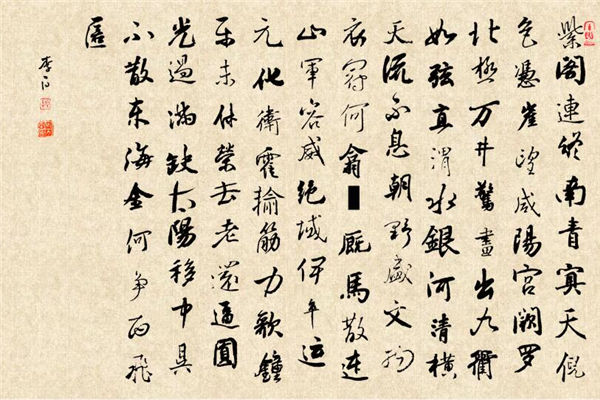 紫阁連終南青冥天倪
色憑崖望咸陽宮闕罗
北極万井驚畫出九衢
如弦直渭水銀河清横
天流不息朝野盛文物
衣冠何翕■厩馬散連
山軍容威絕域伊皋运
元化衛霍输筋力歌鐘
乐未休榮去老還逼圓
光過满缺太陽移中昃
不散東海金何争西飛
匿
李白